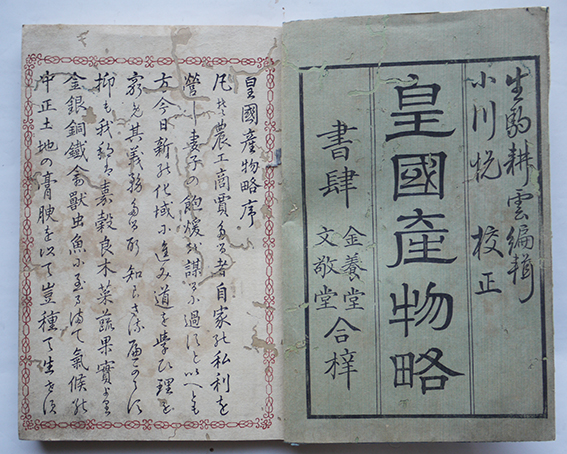 生駒耕雲編輯
小川悦 校正
皇國産物略
書肆
金養堂
文敬堂
合梓
皇國産物略序
凡そ農工商賈たる者自家の私利を
營し妻子の飽煖を謀るに過すと以へとも
方今日新の化域に進み道を學ひ理を
窮め其義務たる所知らさる
抑も我邦たる嘉穀良木菜蔬果實より
金銀銅鐵禽獸虫魚に至るまて氣候の
中正土地の膏腴を以て豈種て生せす